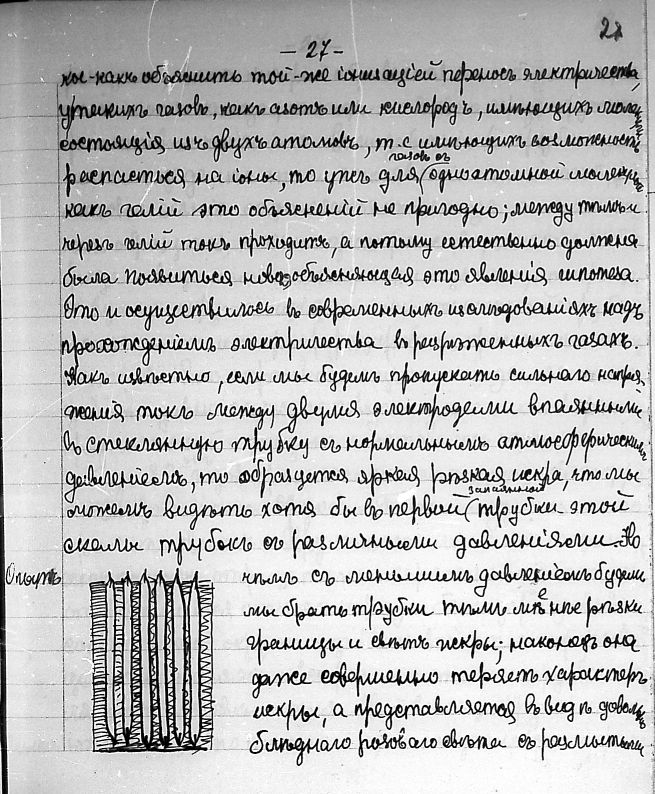 27
— 27 —
кое-какъ объяснить той-же іонизаціей переносъ электричества,
у такихъ газовъ, какъ азотъ или кислородъ, имѣющихъ
состоящія изъ двухъ атомовъ, т.е имѣющихъ возможность
газовъ съ
распасться на іоны, то ужъ для одноатомной
какъ гелій это объясненій не пригодно; между тѣмъ и
черезъ гелій токъ проходитъ, а потому естественно должна
была появиться новая объясняющая это явленія гипотеза.
Это и осуществилось въ современныхъ изслѣдованіяхъ надъ
прохожденіемъ электричества въ разрѣженныхъ газахъ.
Какъ извѣстно, если мы будемъ пропускать сильнаго напря
женія токъ между двумя электродами впаянными
въ стеклянную трубку съ нормальнымъ атмосферическимъ
давленіемъ, то образуется яркая рѣзкая искра, что мы
запаянной
можемъ видѣть хотя бы въ первой трубки этой
скалы трубокъ съ различными давленіями. Но
Опытъ
чѣмъ съ меньшимъ давленіемъ будемъ
мы брать трубки тѣмъ менѣе рѣзки
границы и свѣтъ искры; наконецъ она
даже совершенно теряетъ характеръ
искры, а представляется въ видѣ довольно
блѣднаго розоваго свѣта съ размытыми